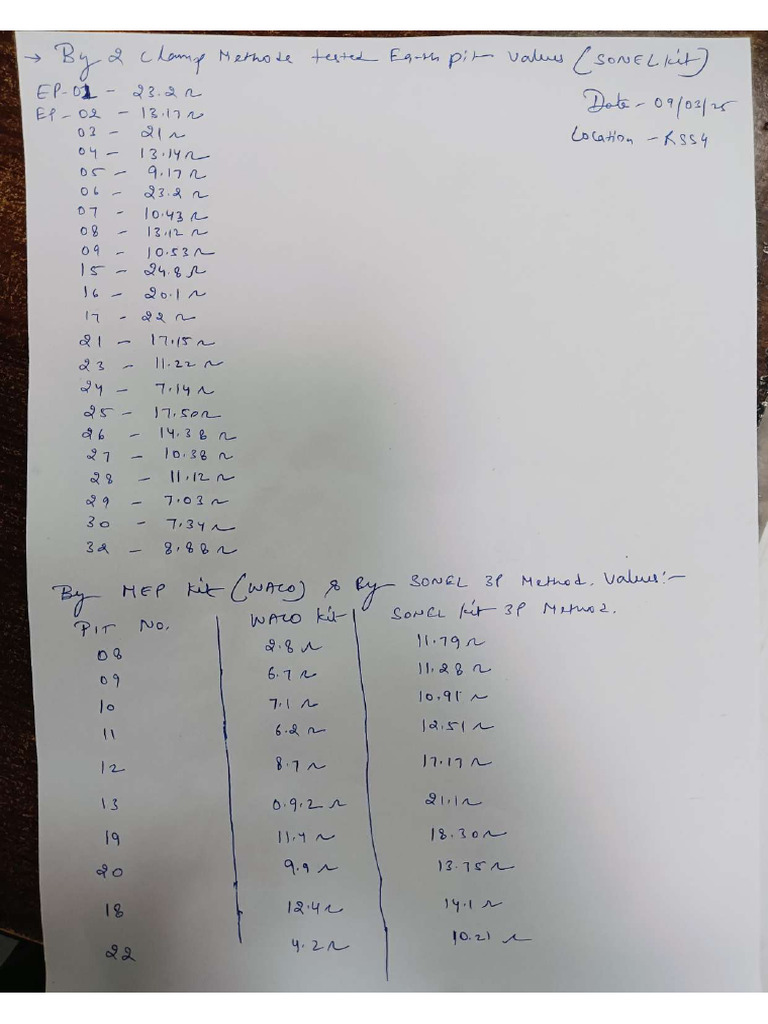 → By 2 clamp Methode tested Earth pit values (SONEL kit)
Date - 09/03/25
Location - RSS4
EP-01 - 23.2 Ω
EP-02 - 13.17 Ω
03 - 21 Ω
04 - 13.14 Ω
05 - 9.17 Ω
06 - 23.2 Ω
07 - 10.43 Ω
08 - 13.12 Ω
09 - 10.53 Ω
15 - 24.8 Ω
16 - 20.1 Ω
17 - 22 Ω
21 - 17.15 Ω
23 - 11.22 Ω
24 - 7.14 Ω
25 - 17.50 Ω
26 - 14.38 Ω
27 - 10.38 Ω
28 - 11.12 Ω
29 - 7.03 Ω
30 - 7.34 Ω
32 - 8.88 Ω
By MEP kit (WACO) & By SONEL 3P Method. Values:-
PIT No. WACO kit SONEL kit 3P Method.
08 2.8 Ω 11.79 Ω
09 6.7 Ω 11.28 Ω
10 7.1 Ω 10.91 Ω
11 6.2 Ω 12.51 Ω
12 8.7 Ω 17.17 Ω
13 0.9.2 Ω 21.1 Ω
19 11.4 Ω 18.30 Ω
20 9.9 Ω 13.75 Ω
18 12.4 Ω 14.1 Ω
22 4.2 Ω 10.21 Ω